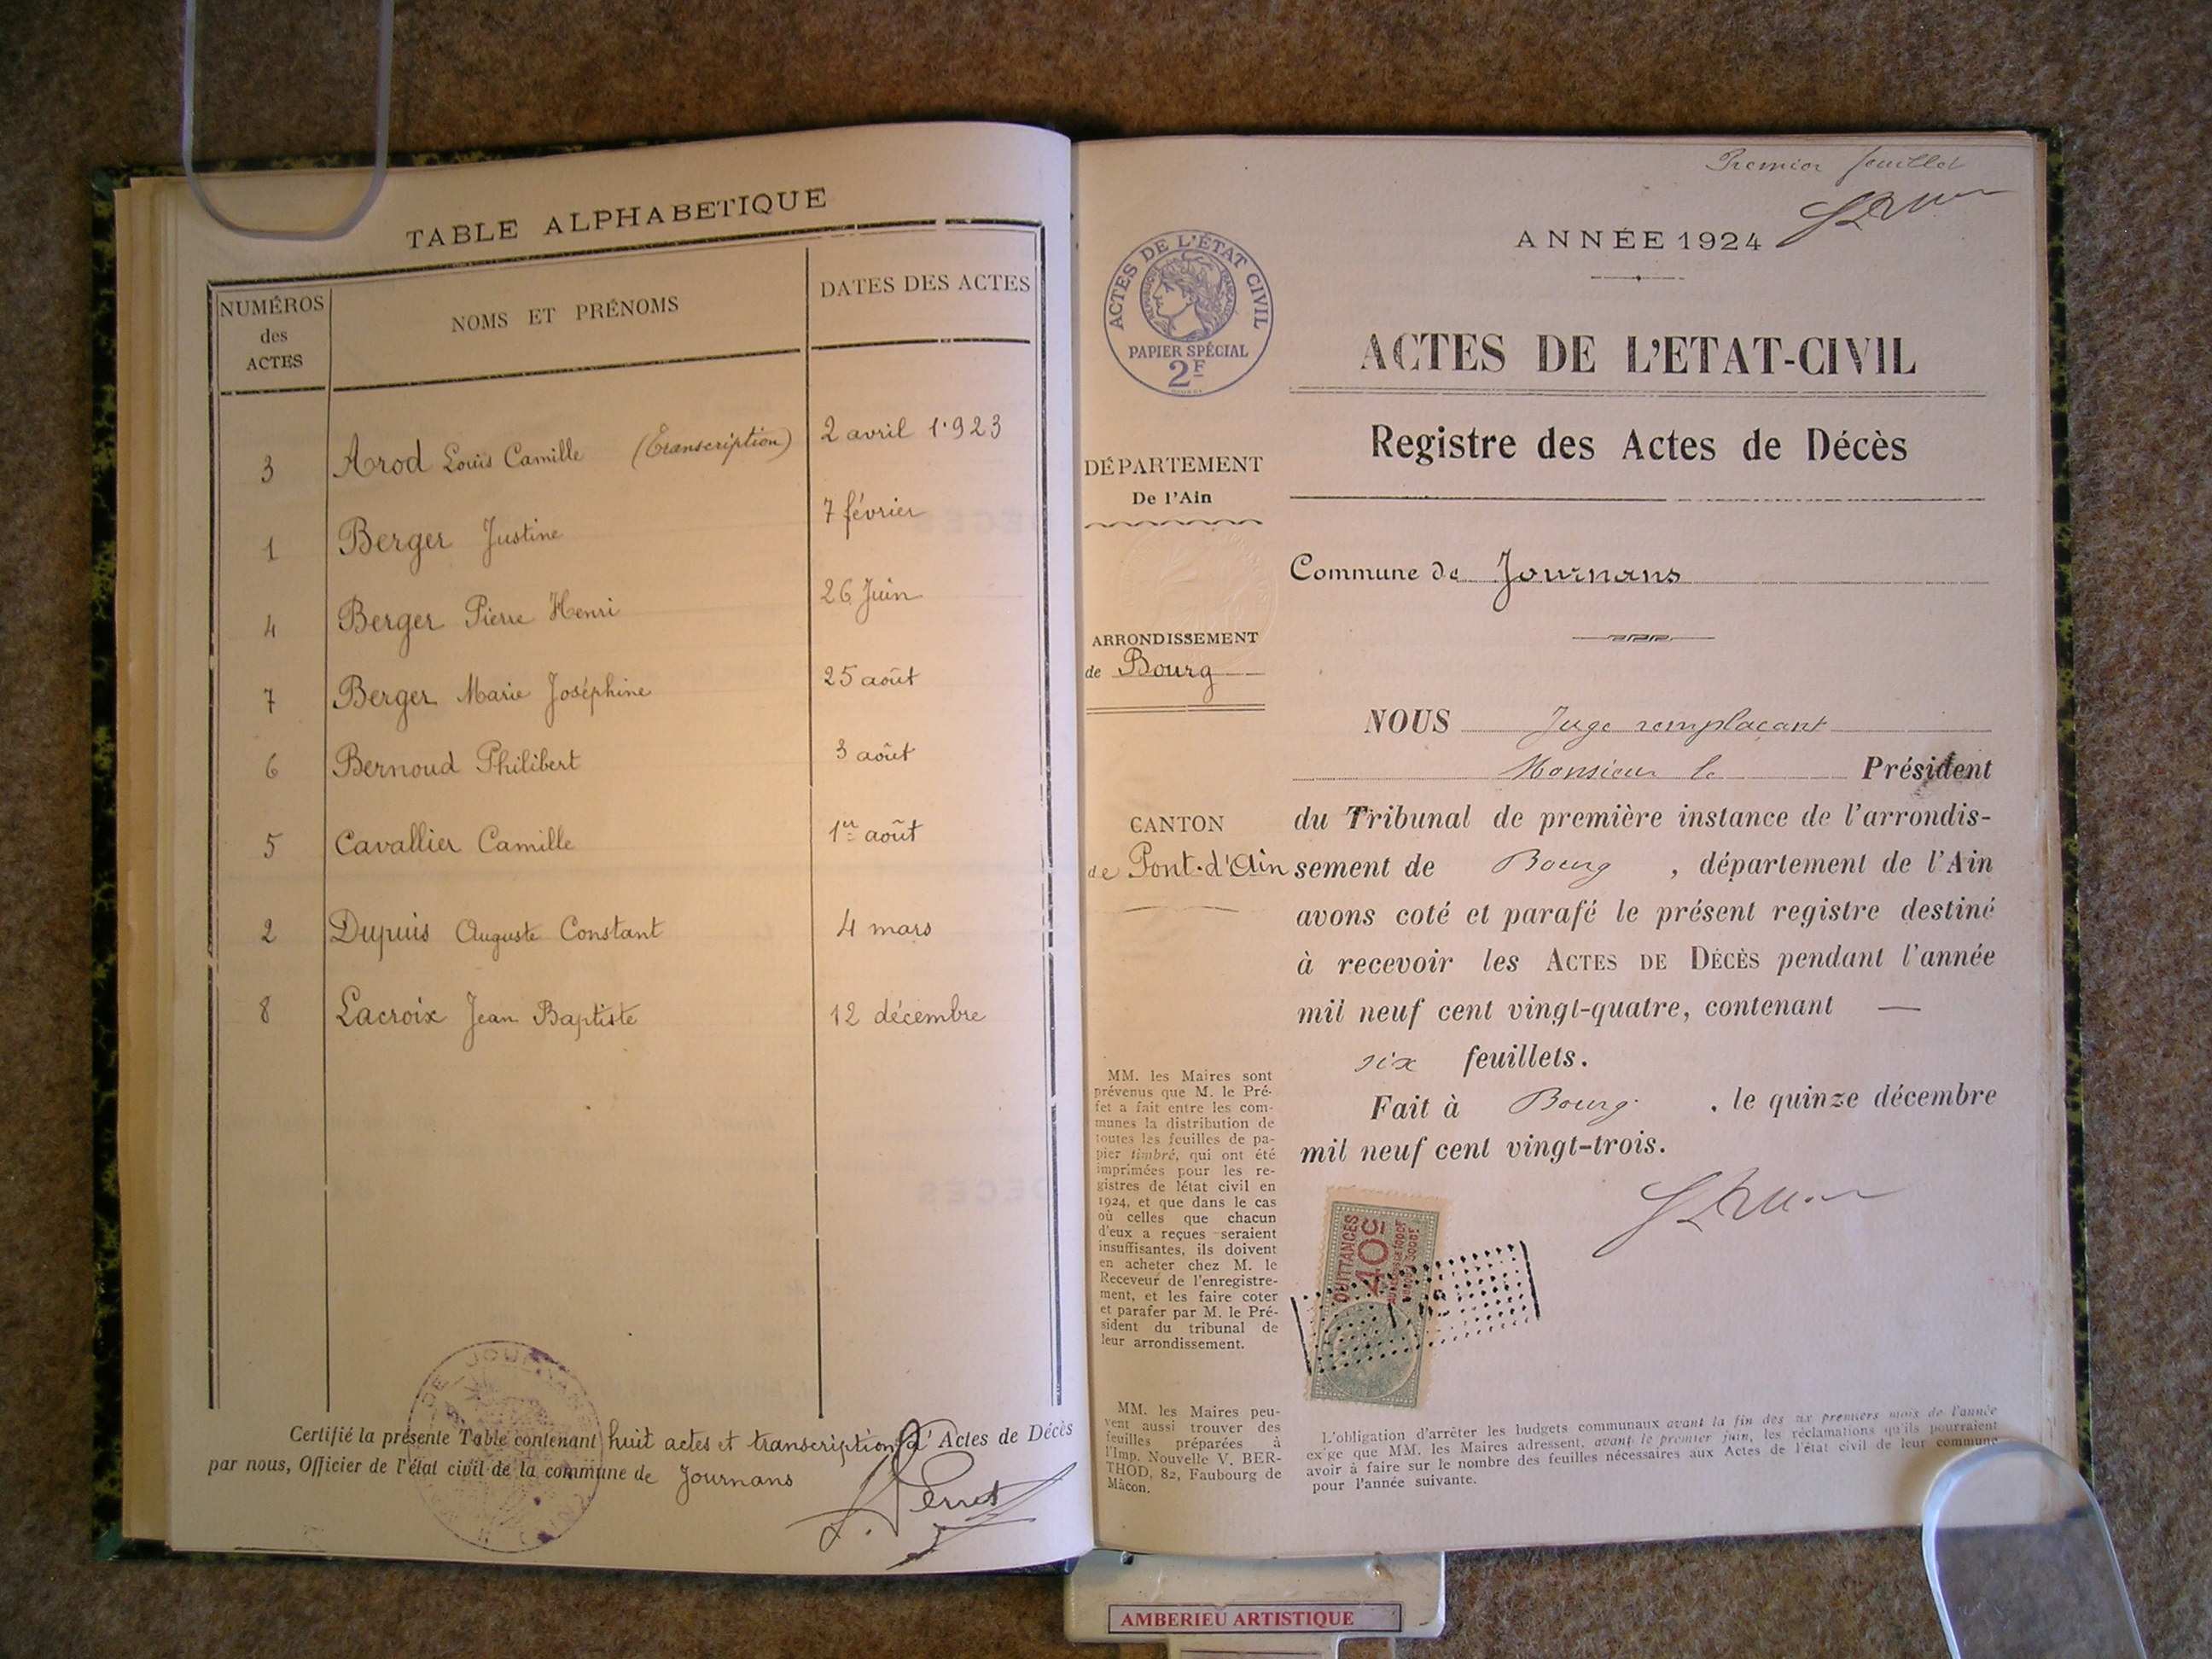 TABLE ALPHABETIQUE
NUMÉROS des ACTES
NOMS ET PRÉNOMS
DATES DES ACTES
3 Arod Louis Camille (Transcription) 2 avril 1923
1 Berger Justine 7 février
4 Berger Pierre Henri 26 Juin
7 Berger Marie Joséphine 25 août
6 Bernoud Philibert 3 août
5 Cavallier Camille 1er août
2 Dupuis Auguste Constant 4 mars
8 Lacroix Jean Baptiste 12 décembre
Certifié la présente Table contenant huit actes et transcription d'Actes de Décès
par nous, Officier de l'état civil de la commune de Journans
Perret
Premier feuillet
ANNÉE 1924
ACTES DE L'ÉTAT CIVIL
RÉPUBLIQUE FRANÇAISE
PAPIER SPÉCIAL
2F
ACTES DE L'ETAT-CIVIL
Registre des Actes de Décès
DÉPARTEMENT
De l'Ain
Commune de Journans
ARRONDISSEMENT
de Bourg
CANTON
de Pont-d'Ain
NOUS Juge remplaçant
Monsieur le Président
du Tribunal de première instance de l'arrondis-
sement de Bourg, département de l'Ain
avons coté et parafé le présent registre destiné
à recevoir les ACTES DE DÉCÈS pendant l'année
mil neuf cent vingt-quatre, contenant —
six feuillets.
Fait à Bourg, le quinze décembre
mil neuf cent vingt-trois.
MM. les Maires sont
prévenus que M. le Pré-
fet a fait entre les com-
munes la distribution de
toutes les feuilles de pa-
pier timbré, qui ont été
imprimées pour les re-
gistres de létat civil en
1924, et que dans le cas
où celles que chacun
d'eux a reçues seraient
insuffisantes, ils doivent
en acheter chez M. le
Receveur de l'enregistre-
ment, et les faire coter
et parafer par M. le Pré-
sident du tribunal de
leur arrondissement.
MM. les Maires peu-
vent aussi trouver des
feuilles préparées à
l'Imp. Nouvelle V. BER-
THOD, 82, Faubourg de
Mâcon.
QUITTANCES
40c
L'obligation d'arrêter les budgets communaux avant la fin des six premiers mois de l'année
exige que MM. les Maires adressent, avant le premier juin, les réclamations qu'ils pourraient
avoir à faire sur le nombre des feuilles nécessaires aux Actes de l'état civil de leur commune
pour l'année suivante.
AMBERIEU ARTISTIQUE